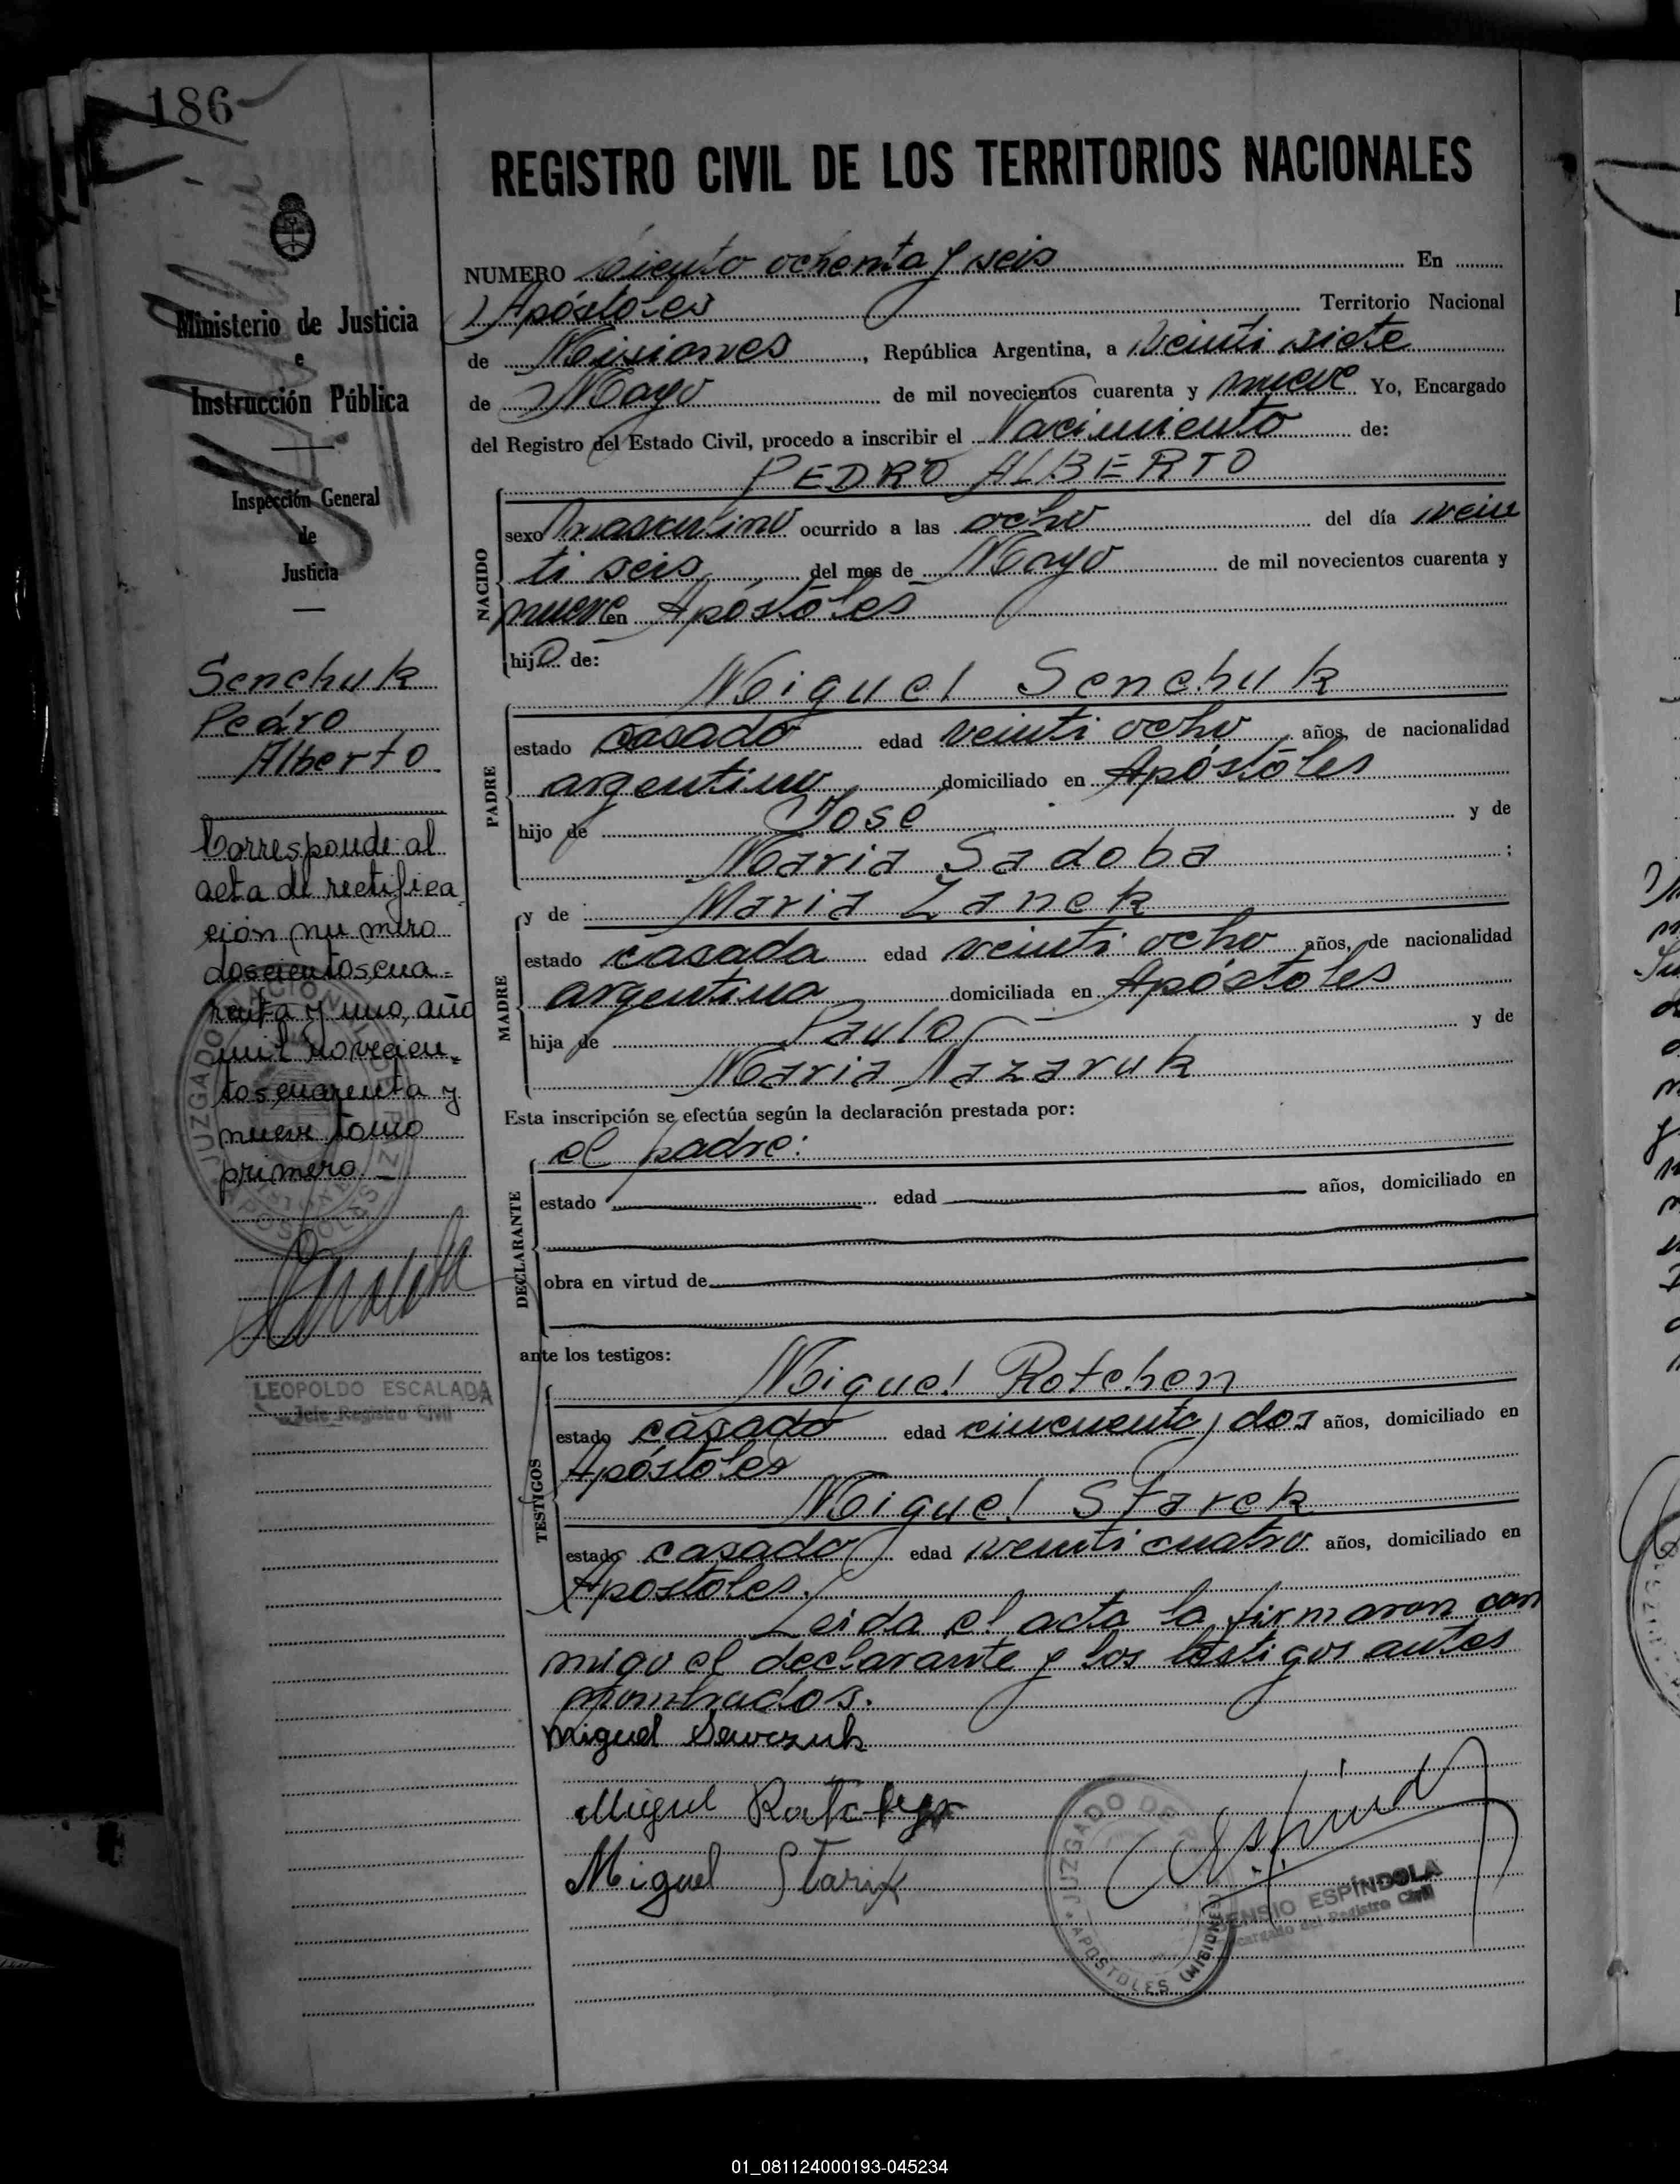 186
REGISTRO CIVIL DE LOS TERRITORIOS NACIONALES
Ministerio de Justicia
e
Instrucción Pública
Inspección General
de
Justicia
Senchuk
Pedro
Alberto
Corresponde al
acta de rectifica
ción nu mero
doscientos cua=
renta y uno, año
mil novecien=
tos cuarenta y
nueve tomo
primero.—
LEOPOLDO ESCALADA
Jefe Registro Civil
NUMERO Ciento ochenta y seis En
Apóstoles Territorio Nacional
de Misiones, República Argentina, a veinti siete
de Mayo de mil novecientos cuarenta y nueve Yo, Encargado
del Registro del Estado Civil, procedo a inscribir el Nacimiento de:
PEDRO ALBERTO
NACIDO
sexo masculino ocurrido a las ocho del día vein
ti seis del mes de Mayo de mil novecientos cuarenta y
nueve en Apóstoles
hijo de:
Miguel Senchuk
PADRE
estado casado edad veinti ocho años, de nacionalidad
argentino domiciliado en Apóstoles
hijo de José y de
Maria Sadoba;
y de Maria Zanek
MADRE
estado casada edad veinti ocho años, de nacionalidad
argentina domiciliada en Apóstoles
hija de Paulo y de
Maria Nazaruk
Esta inscripción se efectúa según la declaración prestada por:
el padre:
DECLARANTE
estado edad años, domiciliado en
obra en virtud de
ante los testigos:
Miguel Rotchen
TESTIGOS
estado casado edad cincuenta y dos años, domiciliado en
Apóstoles
Miguel Starek
estado casado edad veinti cuatro años, domiciliado en
Apostoles.
Leida el acta la firmaron con
migo el declarante y los testigos antes
nombrados.
Miguel Sewczuk
Miguel
Miguel Starix
JUZGADO DE P
APOSTOLES (MISIONES)
ENSIO ESPÍNDOLA
Encargado del Registro Civil
01_081124000193-045234